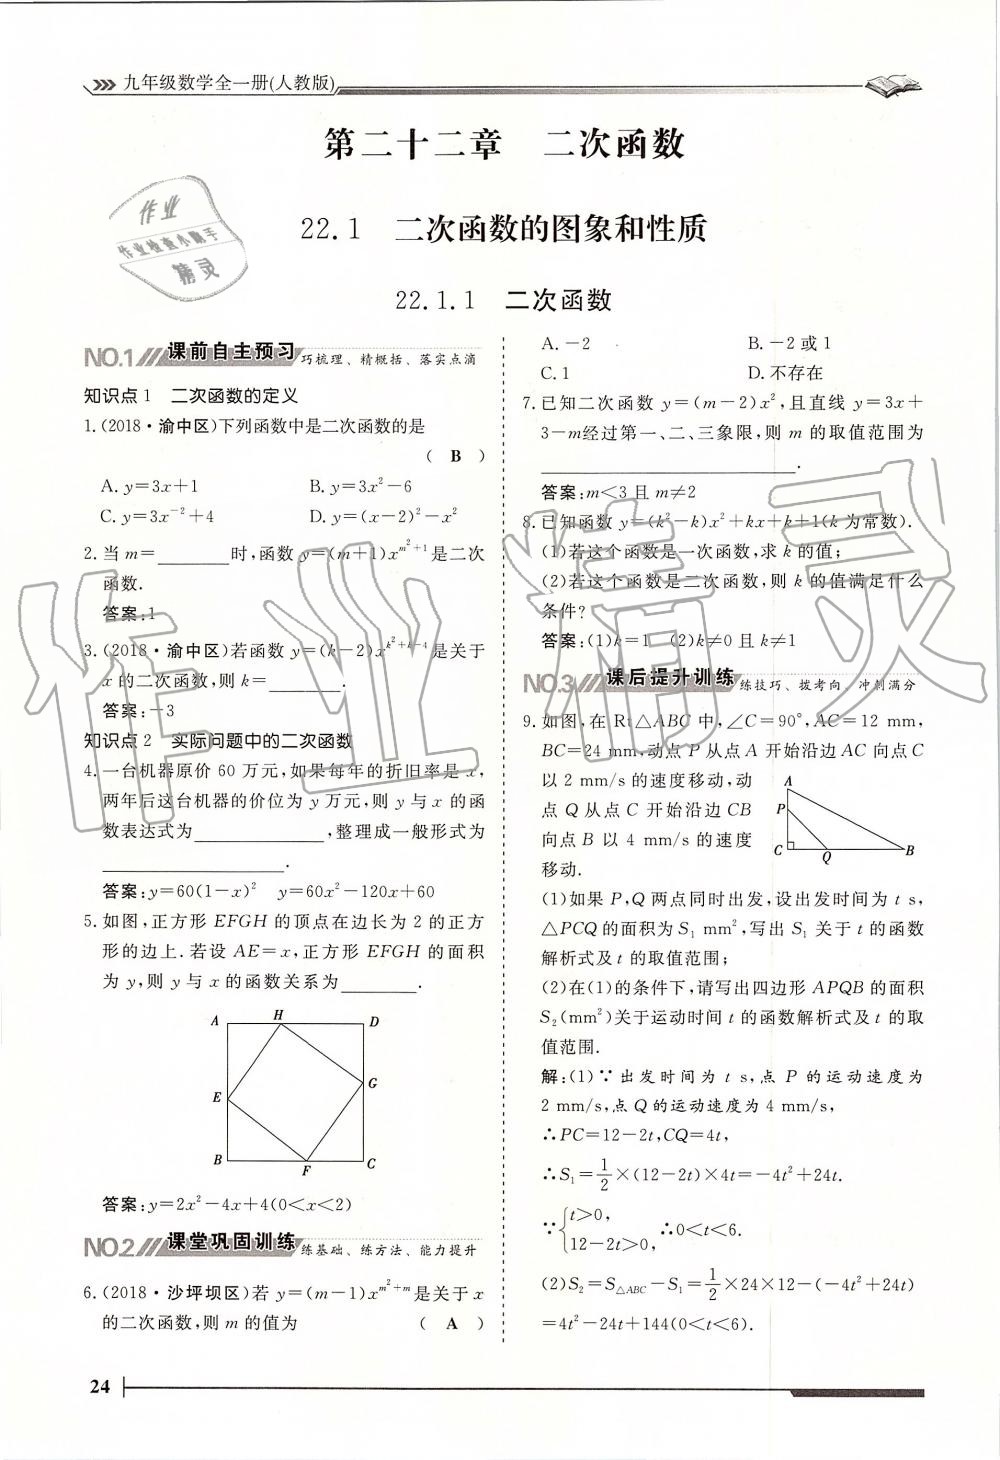 九年级数学全一册(人教版)
第二十二章　二次函数
22.1　二次函数的图象和性质
22.1.1　二次函数
作业
作业检查小助手
精灵
NO.1 课前自主预习 巧梳理、精概括、落实点滴
知识点1　二次函数的定义
1.(2018·渝中区)下列函数中是二次函数的是
( B )
A. y=3x+1　B. y=3x²-6
C. y=3x⁻²+4　D. y=(x-2)²-x²
2. 当 m=________时,函数 y=(m+1)x^{m²+1}是二次
函数.
答案:1
3.(2018·渝中区)若函数 y=(k-2)x^{k²+k-4}是关于
x 的二次函数,则 k=________.
答案:-3
知识点2　实际问题中的二次函数
4. 一台机器原价 60 万元,如果每年的折旧率是 x,
两年后这台机器的价位为 y 万元,则 y 与 x 的函
数表达式为______________,整理成一般形式为
____________________.
答案:y=60(1-x)²　y=60x²-120x+60
5. 如图,正方形 EFGH 的顶点在边长为 2 的正方
形的边上.若设 AE=x,正方形 EFGH 的面积
为 y,则 y 与 x 的函数关系为________.
A H D
E G
B F C
答案:y=2x²-4x+4(0<x<2)
NO.2 课堂巩固训练 练基础、练方法、能力提升
6.(2018·沙坪坝区)若 y=(m-1)x^{m²+m}是关于 x
的二次函数,则 m 的值为　( A )
A. -2　B. -2 或 1
C. 1　D. 不存在
7. 已知二次函数 y=(m-2)x²,且直线 y=3x+
3-m经过第一、二、三象限,则 m 的取值范围为
____________________.
答案:m<3 且 m≠2
8. 已知函数 y=(k²-k)x²+kx+k+1(k 为常数).
(1)若这个函数是一次函数,求 k 的值;
(2)若这个函数是二次函数,则 k 的值满足什么
条件?
答案:(1)k=1　(2)k≠0 且 k≠1
NO.3 课后提升训练 练技巧、拔考向、冲刺满分
9. 如图,在 Rt△ABC 中,∠C=90°,AC=12 mm,
BC=24 mm,动点 P 从点 A 开始沿边 AC 向点 C
以 2 mm/s 的速度移动,动
点 Q 从点 C 开始沿边 CB
向点 B 以 4 mm/s 的速度
移动.
A
P
C Q B
(1)如果 P,Q 两点同时出发,设出发时间为 t s,
△PCQ 的面积为 S₁ mm²,写出 S₁ 关于 t 的函数
解析式及 t 的取值范围;
(2)在(1)的条件下,请写出四边形 APQB 的面积
S₂(mm²)关于运动时间 t 的函数解析式及 t 的取
值范围.
解:(1)∵出发时间为 t s,点 P 的运动速度为
2 mm/s,点 Q 的运动速度为 4 mm/s,
∴PC=12-2t,CQ=4t,
∴S₁=1/2×(12-2t)×4t=-4t²+24t.
∵{t>0, 12-2t>0, ∴0<t<6.
(2)S₂=S△ABC-S₁=1/2×24×12-(-4t²+24t)
=4t²-24t+144(0<t<6).
24
作业精灵